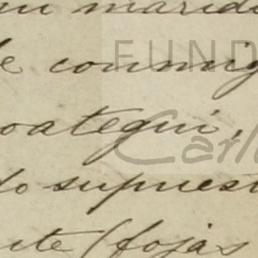 su marid
e conmig
oategui,
do supuest
ite (fojas
FUND
Carl